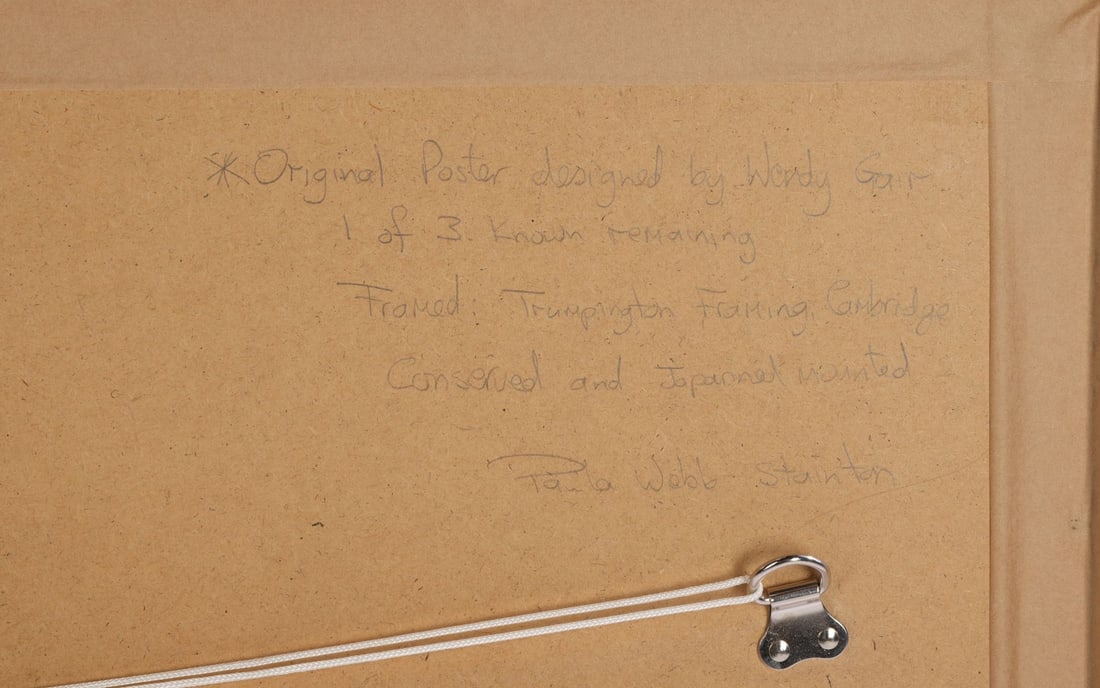 *Original Poster designed by Wendy Gair
1 of 3. Known remaining
Framed: Trumpington Framing, Cambridge
Conserved and Japannel mounted
Paula Webb Stainton